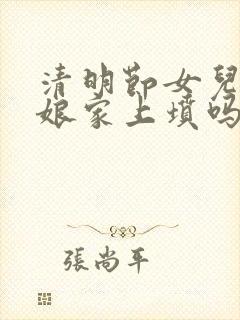 清明節女兒
娘家上墳嗎
張尚平